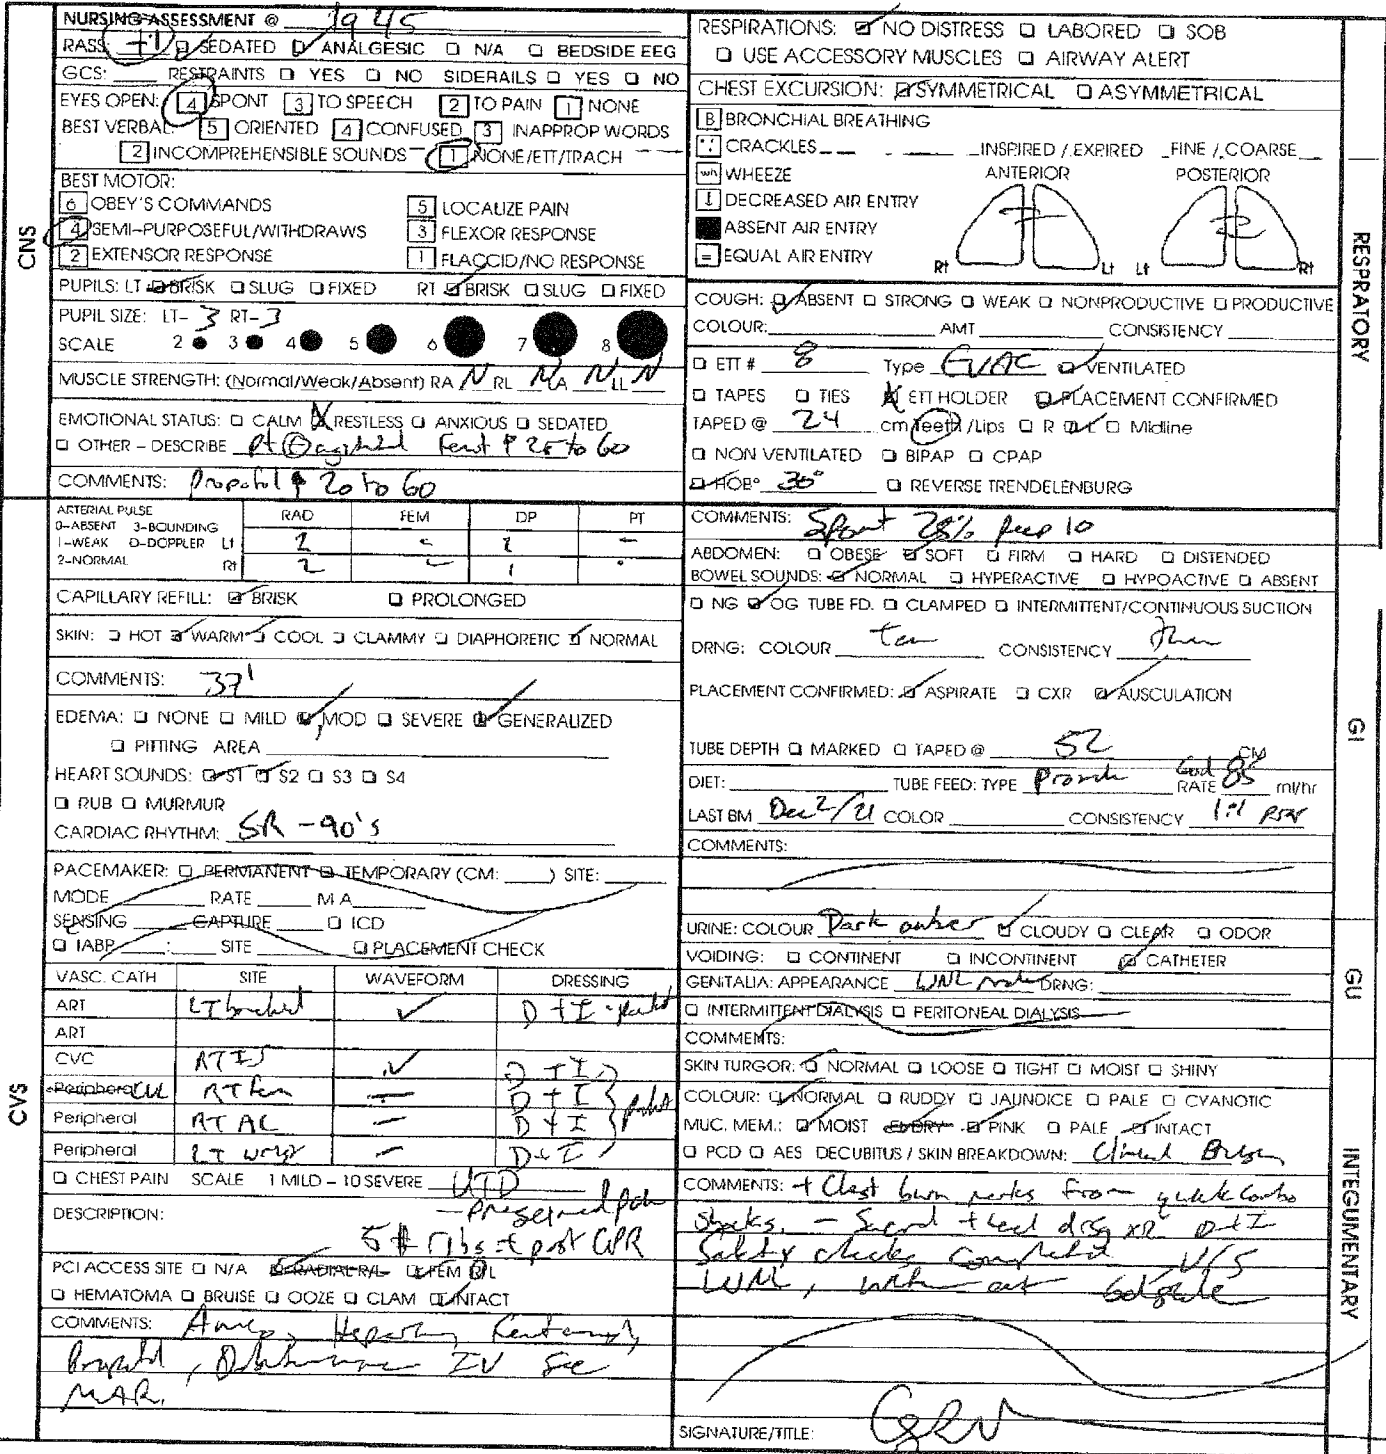 NURSING ASSESSMENT @ 1945
RASS: +1 ☑ SEDATED ☑ ANALGESIC ☐ N/A ☐ BEDSIDE EEG
GCS: ____ RESTRAINTS ☐ YES ☐ NO SIDERAILS ☐ YES ☐ NO
EYES OPEN: 4 SPONT 3 TO SPEECH 2 TO PAIN 1 NONE
BEST VERBAL: 5 ORIENTED 4 CONFUSED 3 INAPPROP WORDS
2 INCOMPREHENSIBLE SOUNDS 1 NONE/ETT/TRACH
BEST MOTOR:
6 OBEY'S COMMANDS 5 LOCALIZE PAIN
4 SEMI-PURPOSEFUL/WITHDRAWS 3 FLEXOR RESPONSE
2 EXTENSOR RESPONSE 1 FLACCID/NO RESPONSE
PUPILS: LT ☑ BRISK ☐ SLUG ☐ FIXED RT ☑ BRISK ☐ SLUG ☐ FIXED
PUPIL SIZE: LT- 3 RT- 3
SCALE 2 3 4 5 6 7 8
MUSCLE STRENGTH: (Normal/Weak/Absent) RA N RL N LA N LL N
EMOTIONAL STATUS: ☐ CALM ☒ RESTLESS ☐ ANXIOUS ☐ SEDATED
☐ OTHER – DESCRIBE Pt agitated Fent ↑ 25 to 60
COMMENTS: Propofol ↑ 20 to 60
CNS
ARTERIAL PULSE RAD FEM DP PT
0-ABSENT 3-BOUNDING
1-WEAK D-DOPPLER Lt 2 - 1 -
2-NORMAL Rt 2 - 1 -
CAPILLARY REFILL: ☑ BRISK ☐ PROLONGED
SKIN: ☐ HOT ☑ WARM ☐ COOL ☐ CLAMMY ☐ DIAPHORETIC ☑ NORMAL
COMMENTS: 37'
EDEMA: ☐ NONE ☐ MILD ☑ MOD ☐ SEVERE ☑ GENERALIZED
☐ PITTING AREA
HEART SOUNDS: ☑ S1 ☑ S2 ☐ S3 ☐ S4
☐ RUB ☐ MURMUR
CARDIAC RHYTHM: SR - 90's
PACEMAKER: ☐ PERMANENT ☐ TEMPORARY (CM: ____) SITE: ____
MODE ____ RATE ____ MA ____
SENSING ____ CAPTURE ____ ☐ ICD
☐ IABP ____:____ SITE ____ ☐ PLACEMENT CHECK
VASC. CATH SITE WAVEFORM DRESSING
ART LT brachial ✓ D + I
ART
CVC RT IJ ✓ D + I
Peripheral CVC RT fem – D + I
Peripheral RT AC – D + I
Peripheral LT wrist – D + I
☐ CHEST PAIN SCALE 1 MILD – 10 SEVERE UTD
DESCRIPTION: - presumed pain
5 # ribs post CPR
PCI ACCESS SITE ☐ N/A ☑ RADIAL R/L ☑ FEM R/L
☐ HEMATOMA ☐ BRUISE ☐ OOZE ☐ CLAM ☑ INTACT
COMMENTS: Amio, Heparin, Fentanyl,
Propofol, Dobutamine IV See
MAR.
CVS
RESPIRATIONS: ☑ NO DISTRESS ☐ LABORED ☐ SOB
☐ USE ACCESSORY MUSCLES ☐ AIRWAY ALERT
CHEST EXCURSION: ☑ SYMMETRICAL ☐ ASYMMETRICAL
B BRONCHIAL BREATHING
CRACKLES INSPIRED / EXPIRED FINE / COARSE
wh WHEEZE ANTERIOR POSTERIOR
↓ DECREASED AIR ENTRY
ABSENT AIR ENTRY
= EQUAL AIR ENTRY Rt Lt Lt Rt
COUGH: ☑ ABSENT ☐ STRONG ☐ WEAK ☐ NONPRODUCTIVE ☐ PRODUCTIVE
COLOUR: ____ AMT ____ CONSISTENCY ____
☐ ETT # 8 Type EVAC ☑ VENTILATED
☐ TAPES ☐ TIES ☒ ETT HOLDER ☑ PLACEMENT CONFIRMED
TAPED @ 24 cm Teeth /Lips ☐ R ☑ L ☐ Midline
☐ NON VENTILATED ☐ BIPAP ☐ CPAP
☑ HOB° 30° ☐ REVERSE TRENDELENBURG
COMMENTS: Spont 28% Peep 10
RESPRATORY
ABDOMEN: ☐ OBESE ☑ SOFT ☐ FIRM ☐ HARD ☐ DISTENDED
BOWEL SOUNDS: ☑ NORMAL ☐ HYPERACTIVE ☐ HYPOACTIVE ☐ ABSENT
☐ NG ☑ OG TUBE FD. ☐ CLAMPED ☐ INTERMITTENT/CONTINUOUS SUCTION
DRNG: COLOUR tan CONSISTENCY
PLACEMENT CONFIRMED: ☑ ASPIRATE ☐ CXR ☑ AUSCULATION
TUBE DEPTH ☐ MARKED ☐ TAPED @ 52 CM
DIET: ____ TUBE FEED: TYPE RATE 85 ml/hr
LAST BM Dec 2/21 COLOR ____ CONSISTENCY
COMMENTS:
GI
URINE: COLOUR Dark amber ☑ CLOUDY ☐ CLEAR ☐ ODOR
VOIDING: ☐ CONTINENT ☐ INCONTINENT ☑ CATHETER
GENITALIA: APPEARANCE WNL male DRNG:
☐ INTERMITTENT DIALYSIS ☐ PERITONEAL DIALYSIS
COMMENTS:
GU
SKIN TURGOR: ☑ NORMAL ☐ LOOSE ☐ TIGHT ☐ MOIST ☐ SHINY
COLOUR: ☑ NORMAL ☐ RUDDY ☐ JAUNDICE ☐ PALE ☐ CYANOTIC
MUC. MEM.: ☑ MOIST ☐ DRY ☑ PINK ☐ PALE ☑ INTACT
☐ PCD ☐ AES DECUBITUS / SKIN BREAKDOWN:
COMMENTS: + Chest burn marks from quick combo
shocks. - Sacral + heel drsg D + I
Safety checks completed V/S
WNL, at bedside
INTEGUMENTARY
SIGNATURE/TITLE: